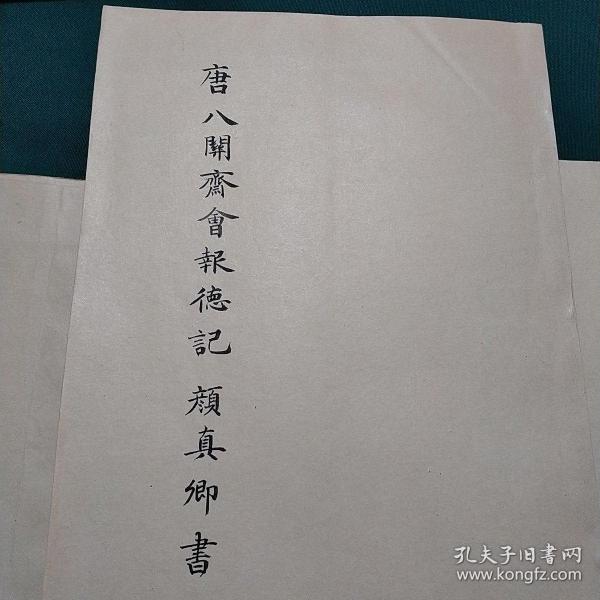 唐八關齋會報德記 顏真卿書
孔夫子旧书网
www.kongfz.com